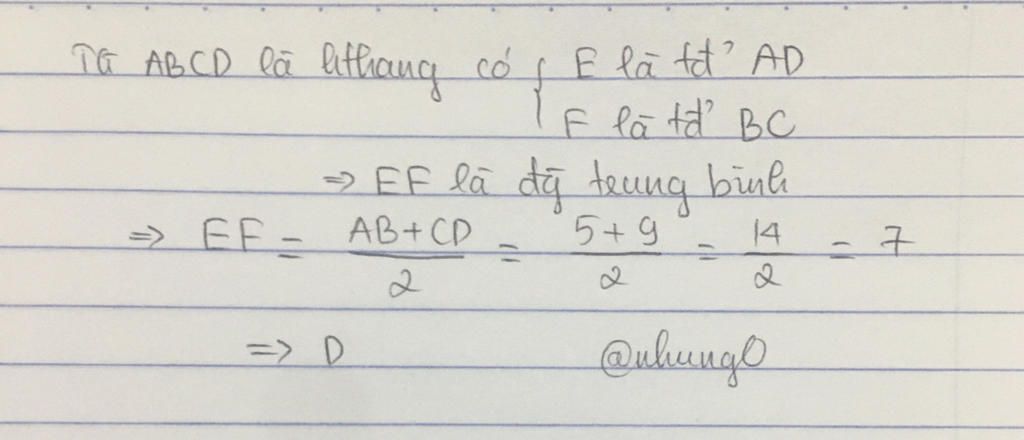 Tg ABCD là hthang có { E là tđ' AD
F là tđ' BC
=> EF là đg trung bình
=> EF = AB+CD/2 = 5+9/2 = 14/2 = 7
=> D
@nhung0